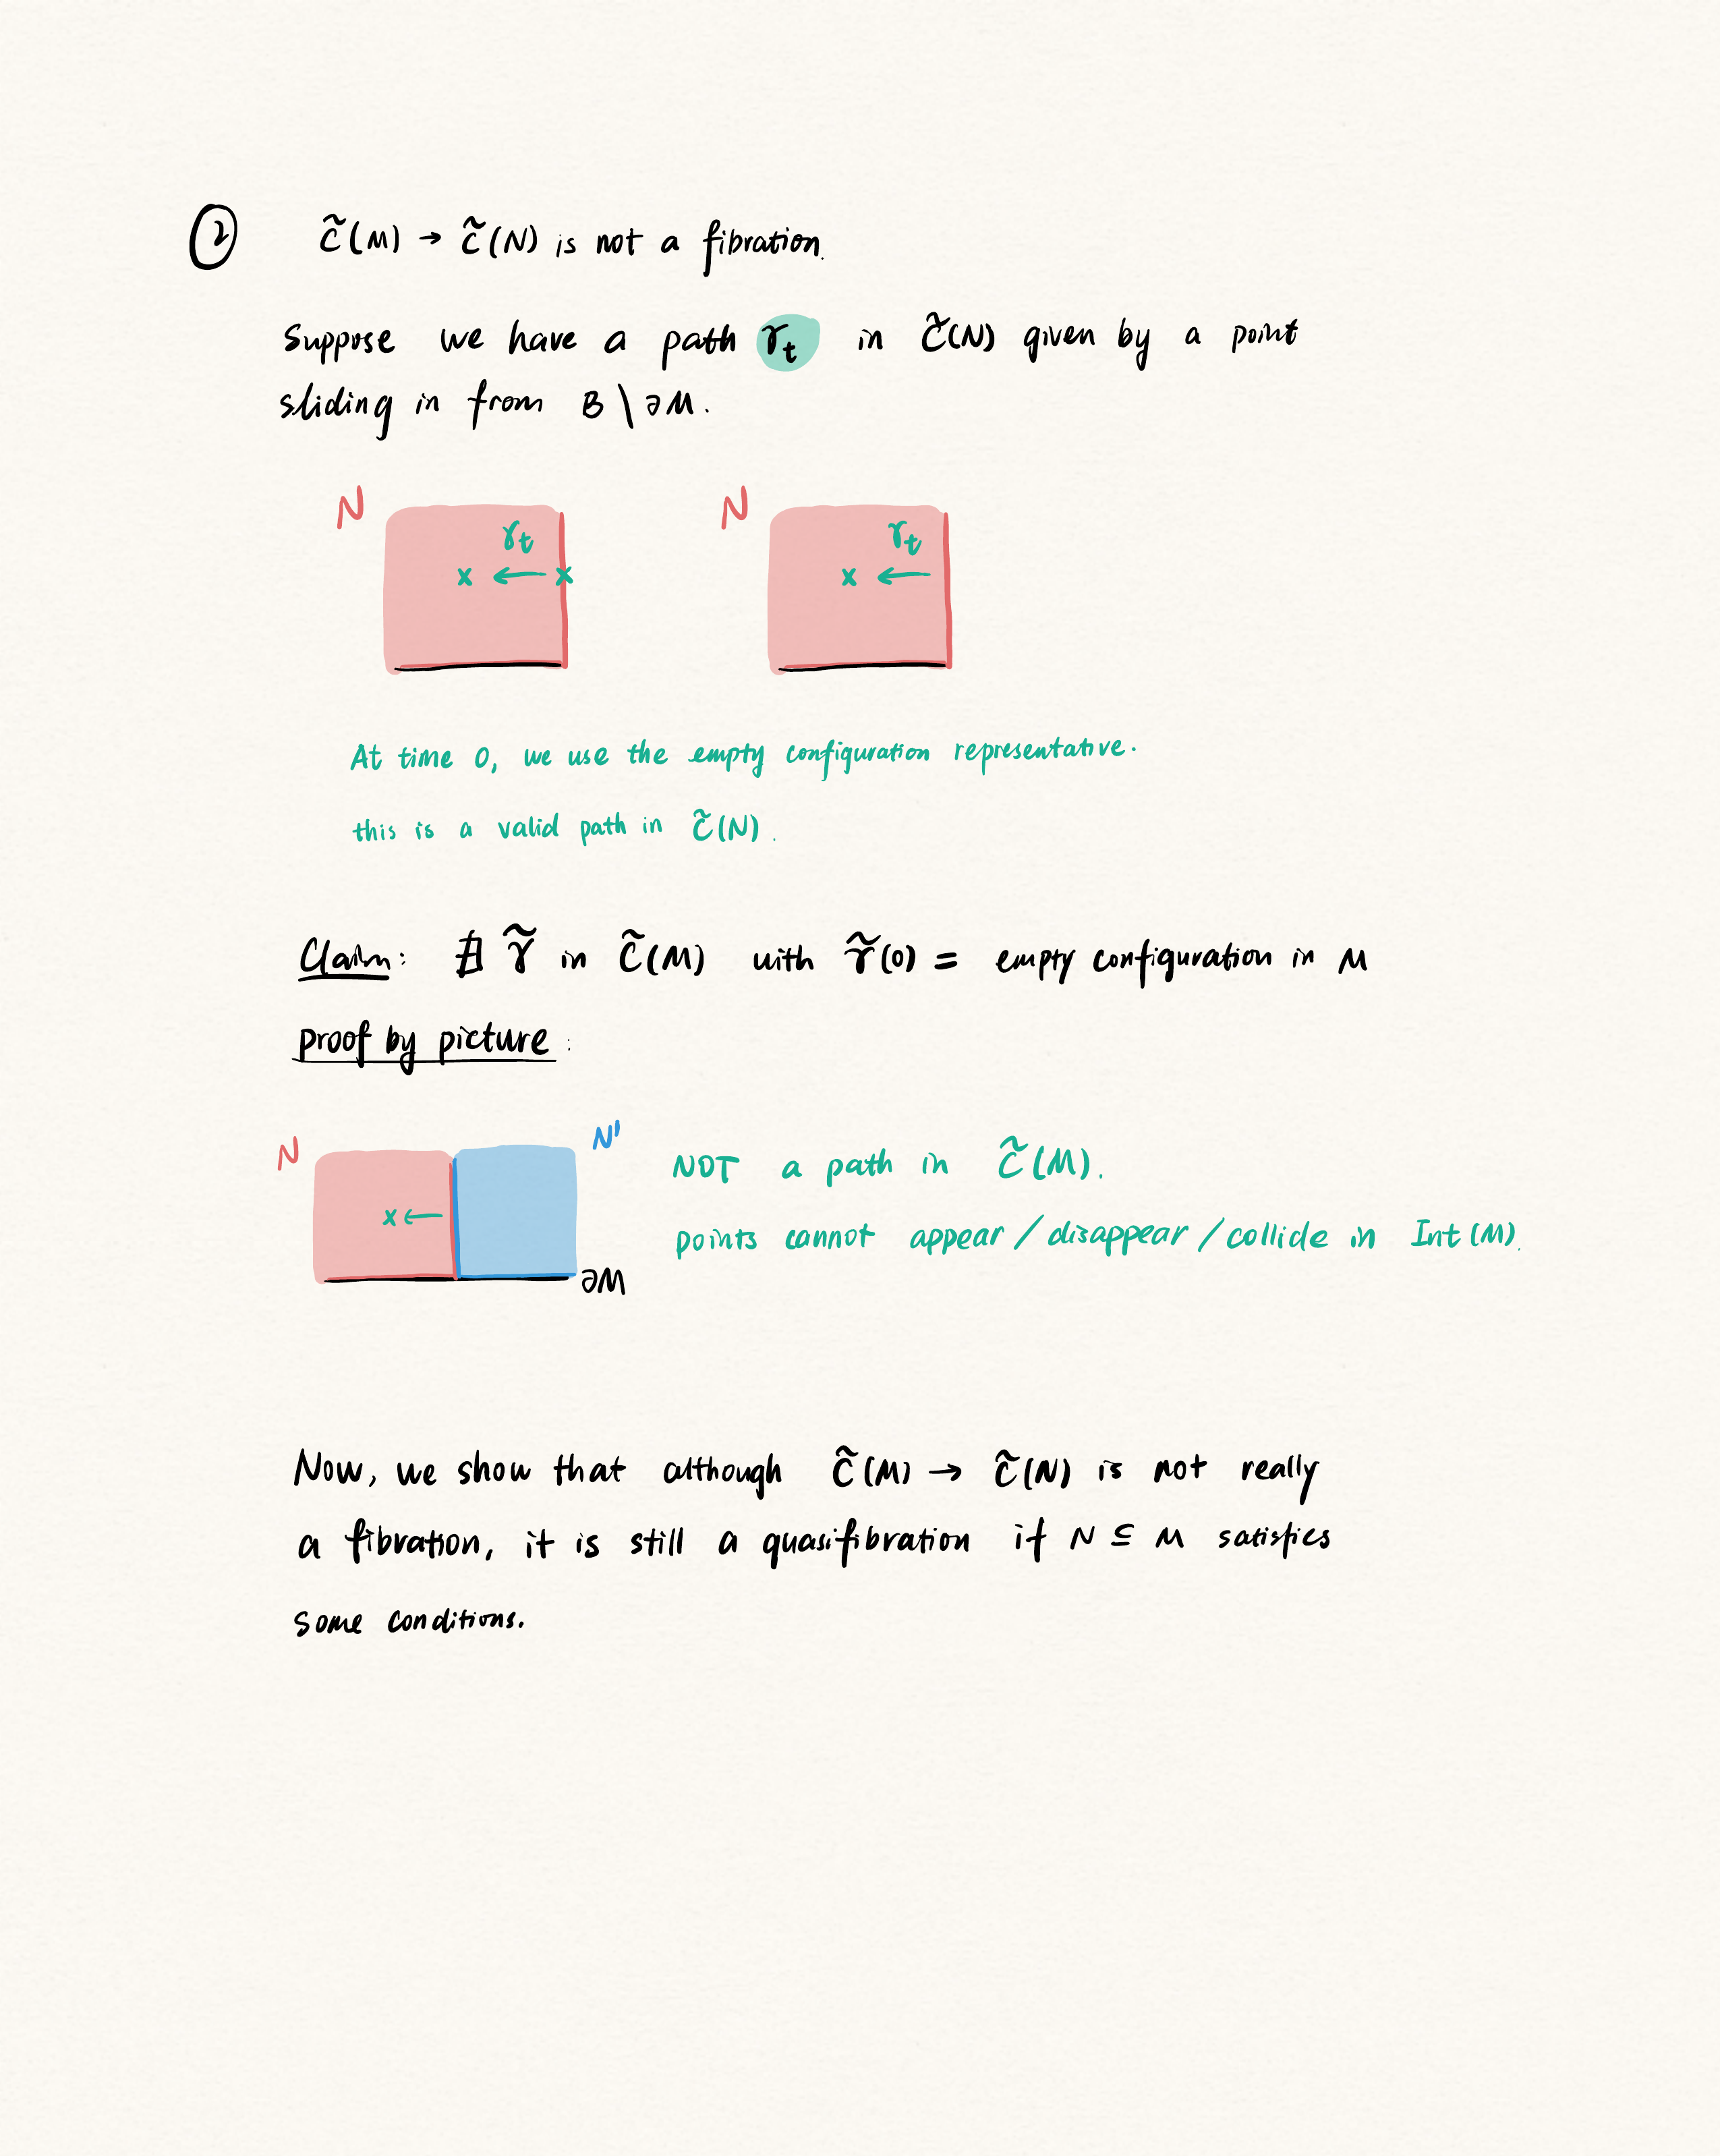 ② C̃(M) → C̃(N) is not a fibration.
Suppose we have a path γₜ in C̃(N) given by a point
sliding in from B \ ∂M.
N γₜ x ← x
N γₜ x ←
At time 0, we use the empty configuration representative.
this is a valid path in C̃(N).
Claim: ∄ γ̃ in C̃(M) with γ̃(0) = empty configuration in M
proof by picture:
N x ← N' ∂M
NOT a path in C̃(M).
points cannot appear / disappear / collide in Int(M).
Now, we show that although C̃(M) → C̃(N) is not really
a fibration, it is still a quasifibration if N ⊆ M satisfies
some conditions.